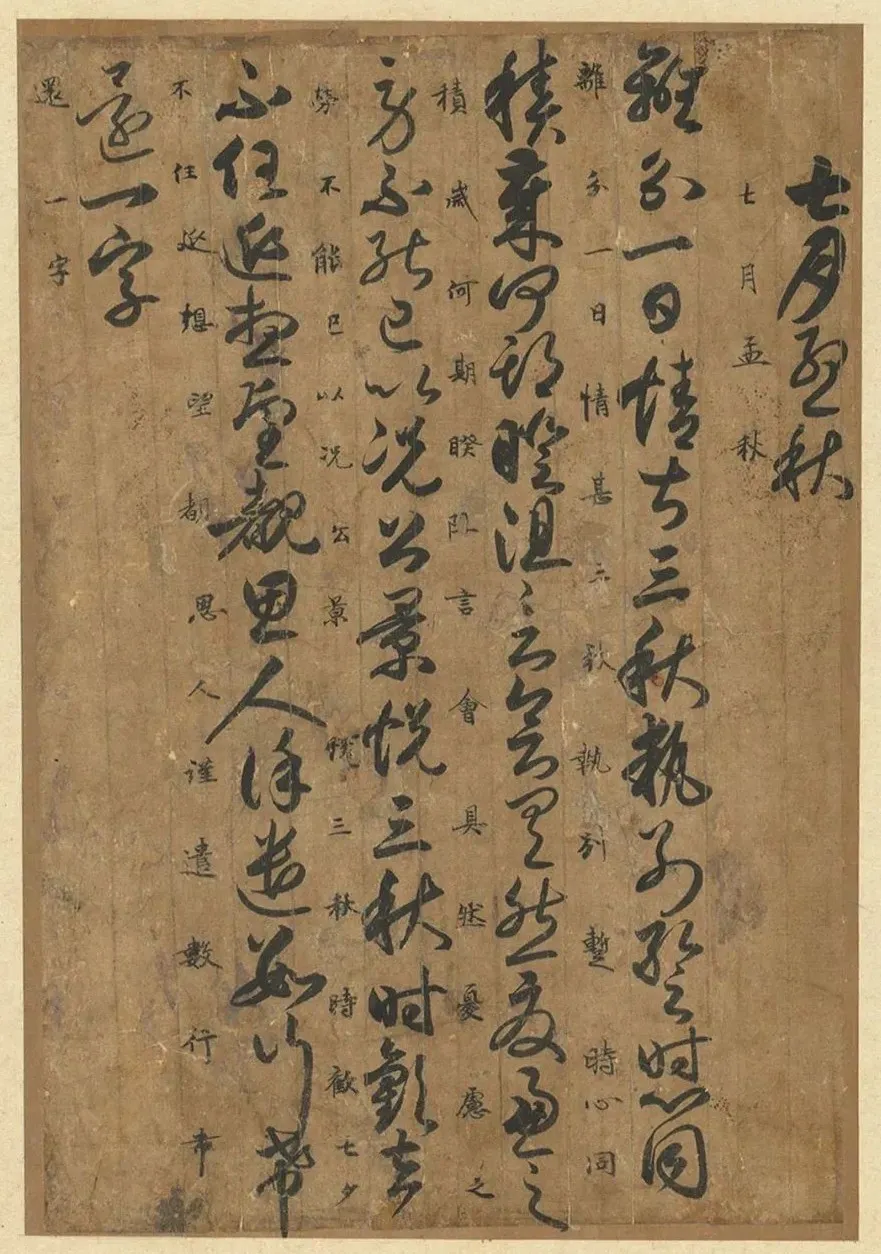 七月孟秋
七月孟秋
離分一日情甚三秋執別暫時心同
離分一日情甚三秋執別暫時心同
積歲何期睽阻言會具然憂慮之
積歲何期睽阻言會具然憂慮之
勞不能已以況公景悅三秋時歡
勞不能已以況公景悅三秋時歡七夕
不任延想望覩思人謹遣數行希
不任延想望都思人謹遣數行希
還一字
還一字